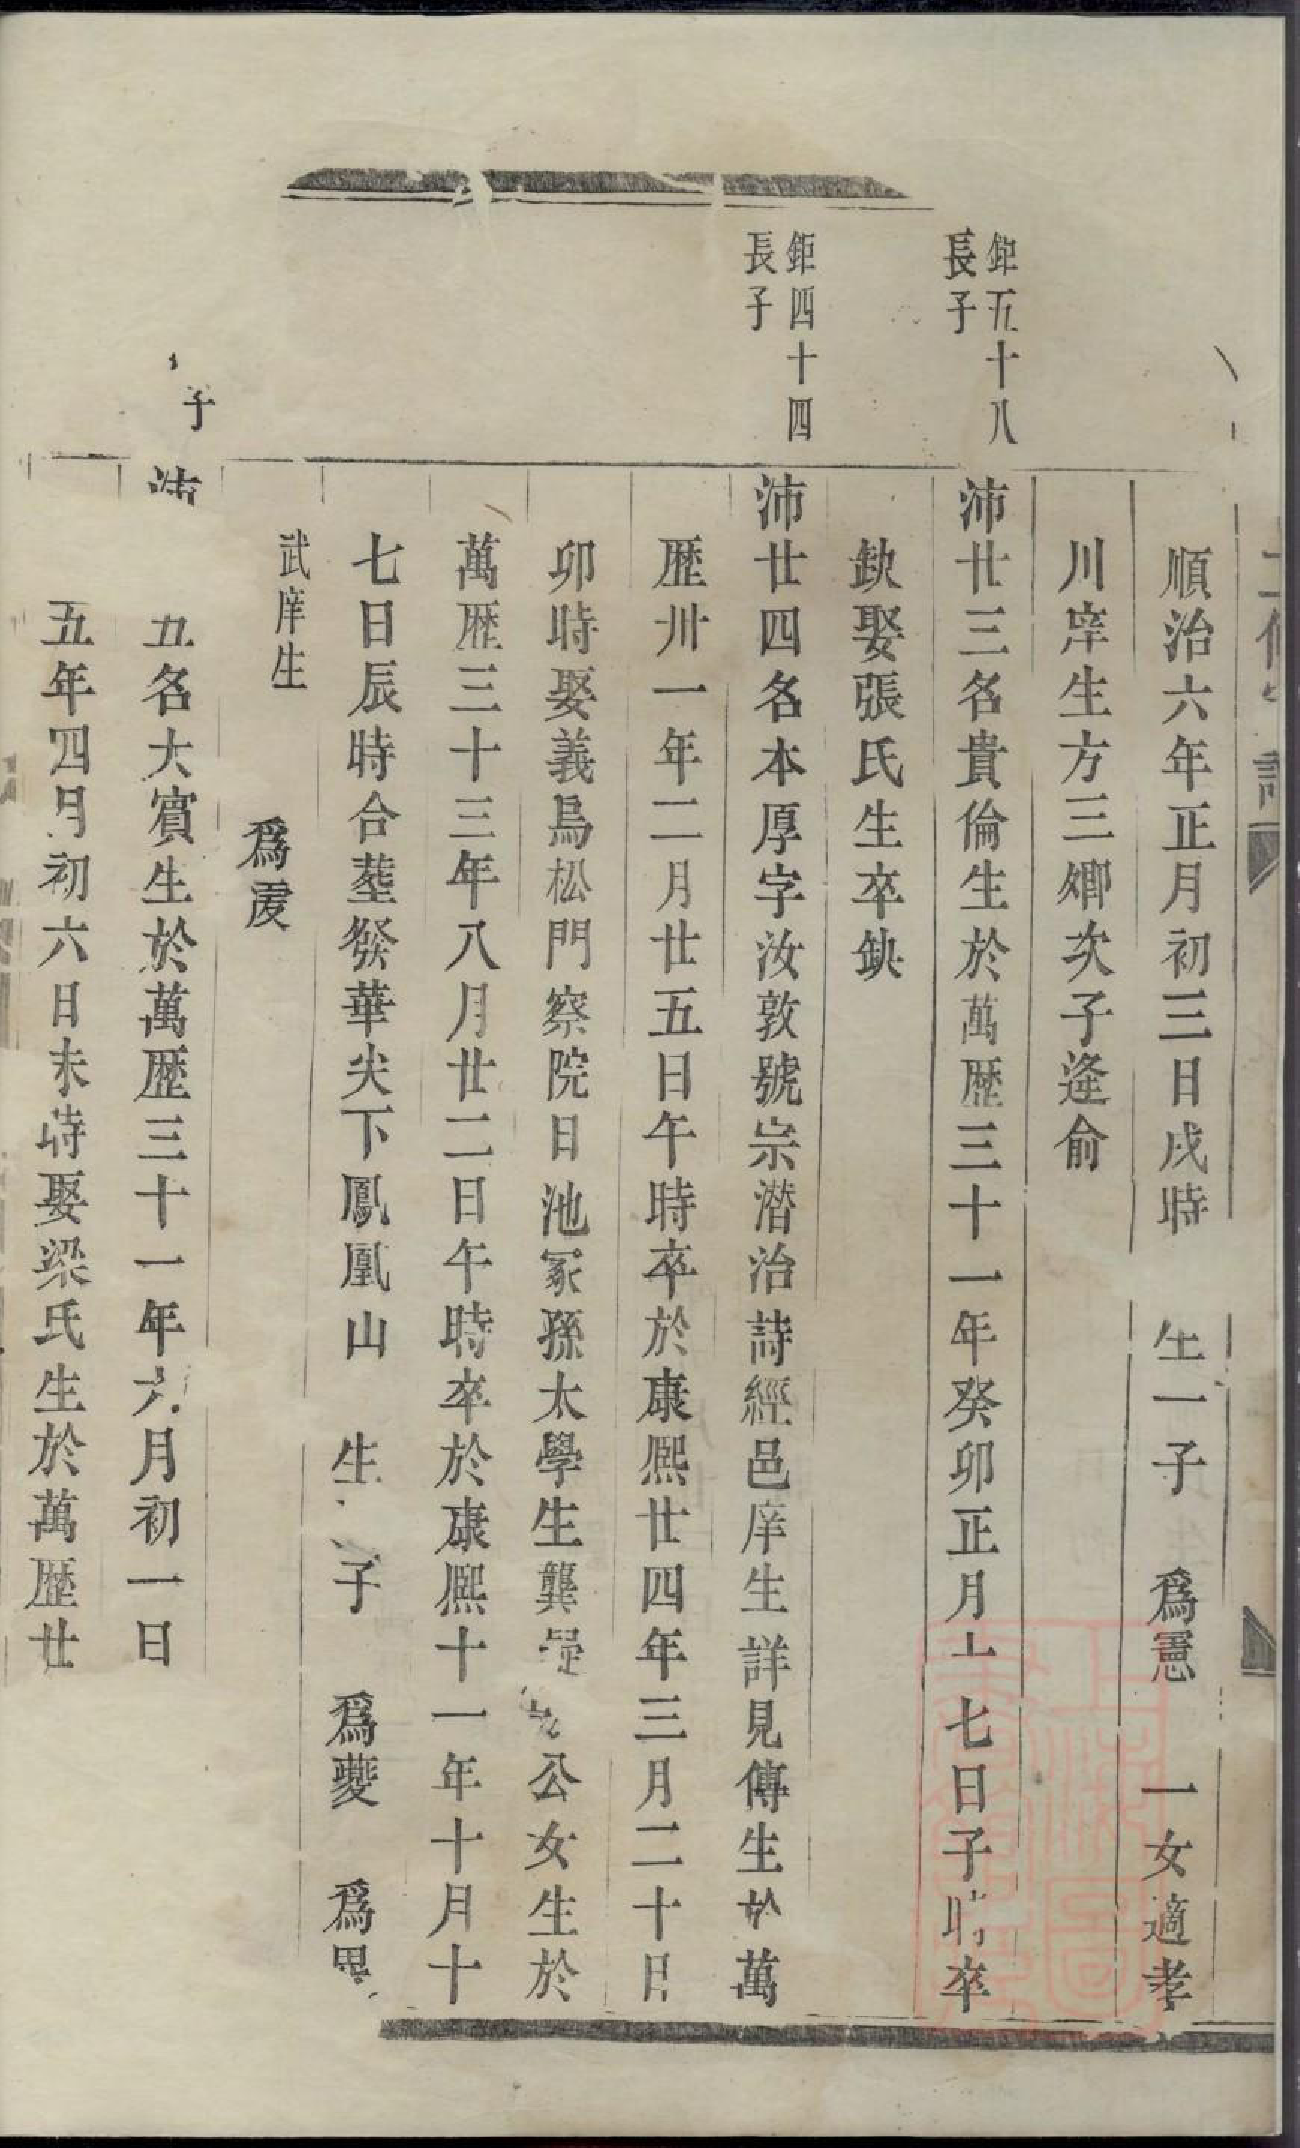 順治六年正月初三日戌時 生一子 爲憲 一女適孝
川庠生方三卿次子逢俞
鉅五十八
長子
沛廿三名貴倫生於萬歷三十一年癸卯正月 七日子時卒
缺娶張氏生卒缺
鉅四十四
長子
沛廿四名本厚字汝敦號崇潛治詩經邑庠生詳見傳生於萬
歷卅一年二月廿五日午時卒於康熙廿四年三月二十日
卯時娶義烏松門察院日池冢孫太學生龔 公女生於
萬歷三十三年八月廿二日午時卒於康熙十一年十月十
七日辰時合塟發華尖下鳳凰山 生 子 爲夔 爲
武庠生
爲
子
沛 五名大賓生於萬歷三十一年六月初一日
五年四月初六日未時娶梁氏生於萬歷廿